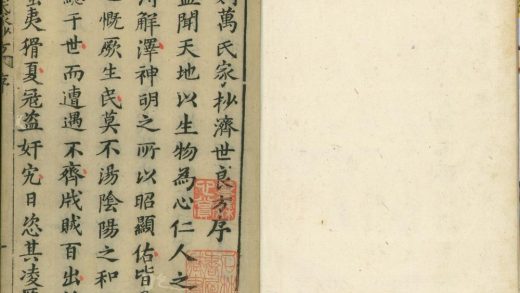 萬氏家抄濟世良方序
聞天地以生物為心仁人之
解澤神明之所以昭顯佑皆
慨厥生民莫不湯陰陽之和
于世而遭遇不齊戕賊百出
夷猾夏寇盜奸宄日恣其凌
序